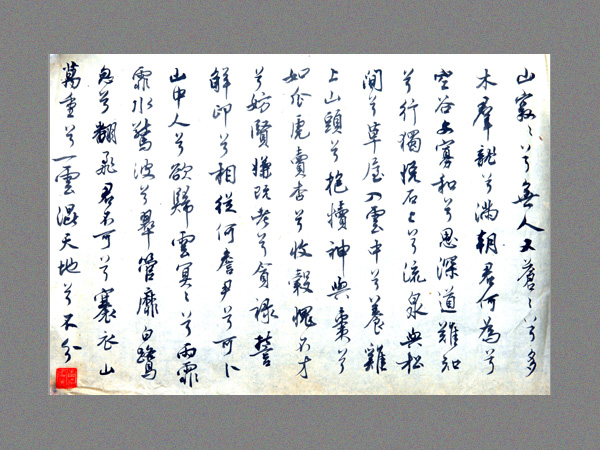 山寂〻兮無人又蒼〻兮多
木羣龍兮滿朝君何為兮
空谷文寡和兮思深道難知
兮行獨悅石上兮流泉與松
間兮草屋入雲中兮養雞
上山頭兮抱犢神與棗兮
如瓜虎賣杏兮收穀愧不才
兮妨賢嫌既老兮貪祿誓
解印兮相從何詹尹兮可卜
山中人兮欲歸雲冥〻兮雨霏
霏水驚波兮翠菅靡白鷺
忽兮翻飛君不可兮褰衣山
萬重兮一雲混天地兮不分